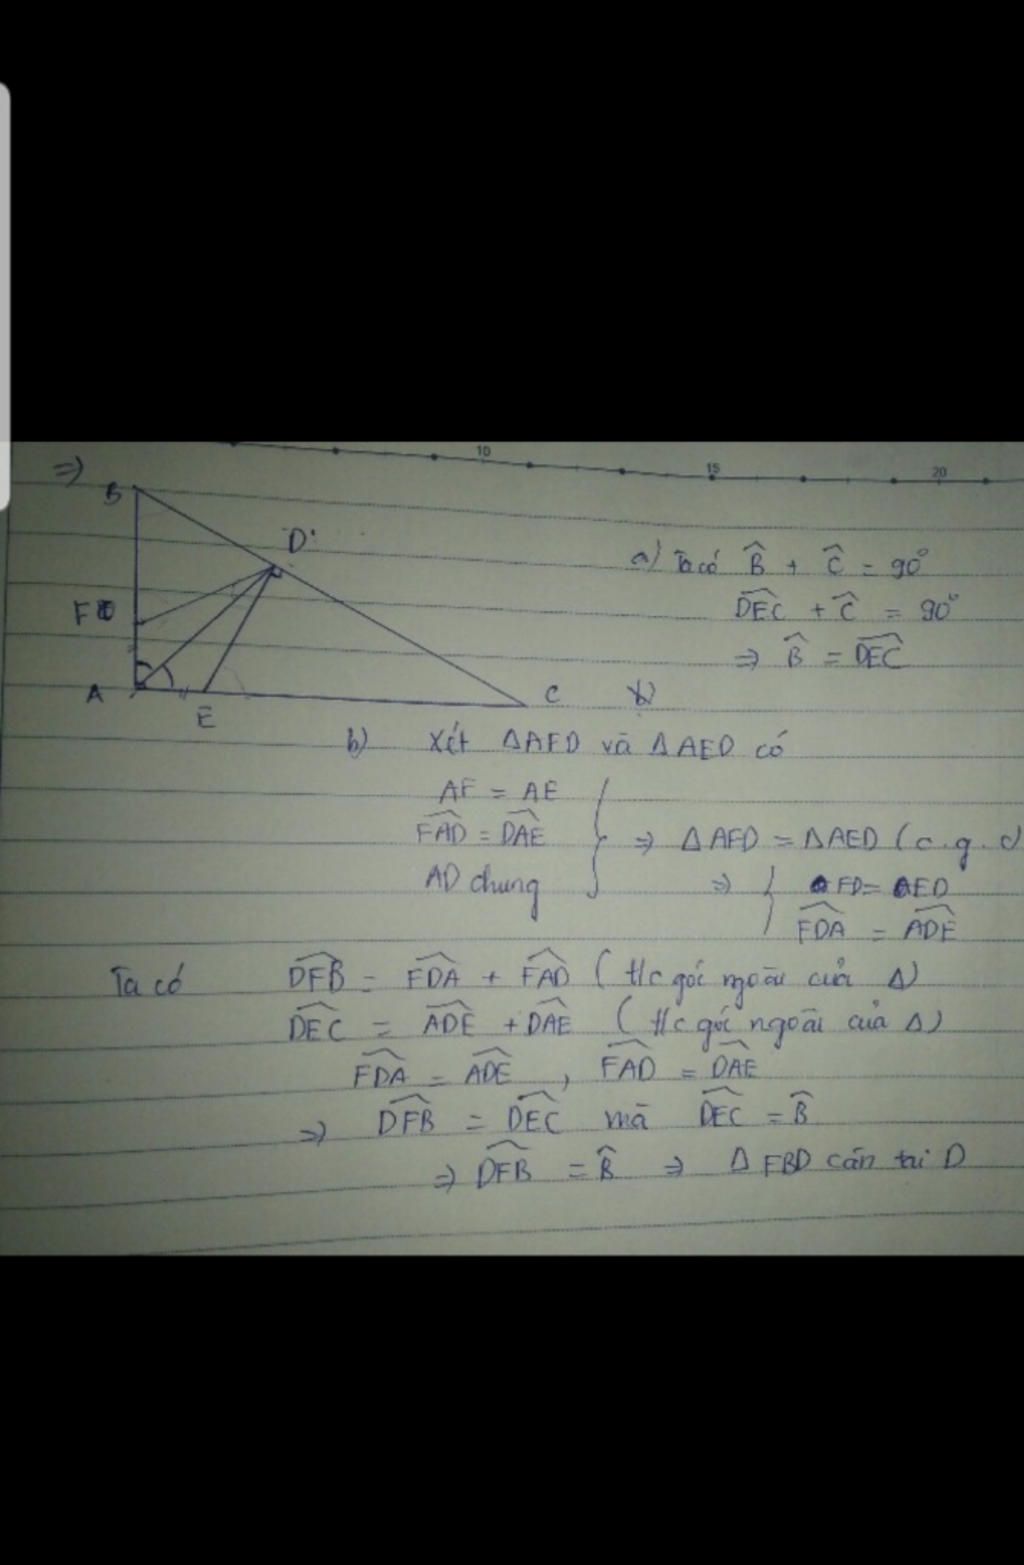 10 15 20
=>
B
D
F
A
E
C
a) Ta có B̂ + Ĉ = 90°
DEC̑ + Ĉ = 90°
=> B̂ = DEC̑
b) Xét ΔAFD và ΔAED có
AF = AE
FAD̑ = DAȆ } => ΔAFD = ΔAED (c.g.c)
AD chung => { FD = ED
FDȂ = ADȆ
Ta có DFB̑ = FDȂ + FAD̑ (t/c góc ngoài của Δ)
DEC̑ = ADȆ + DAȆ (t/c góc ngoài của Δ)
FDȂ = ADȆ , FAD̑ = DAȆ
=> DFB̑ = DEC̑ mà DEC̑ = B̂
=> DFB̑ = B̂ => Δ FBD cân tại D